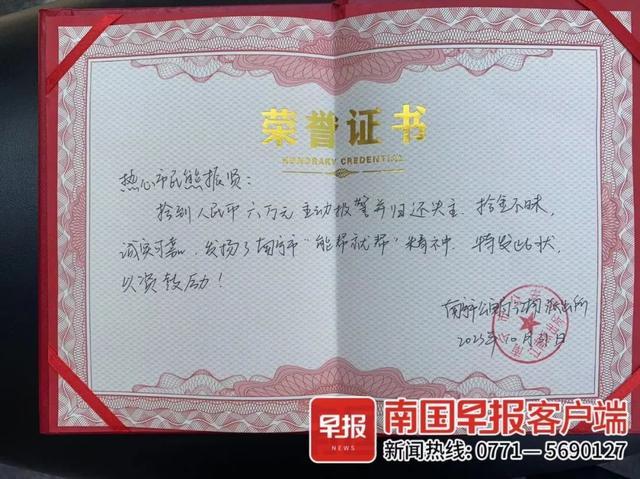 荣誉证书
HONORARY CREDENTIAL
热心市民熊振贤：
拾到人民币六万元主动报警并归还失主，拾金不昧，
诚实可嘉，发扬了南宁市“能帮就帮”精神，特发此状，
以资鼓励！
南宁公安局 派出所
2023年10月 日
早报
NEWS
南国早报客户端
新闻热线: 0771—5690127